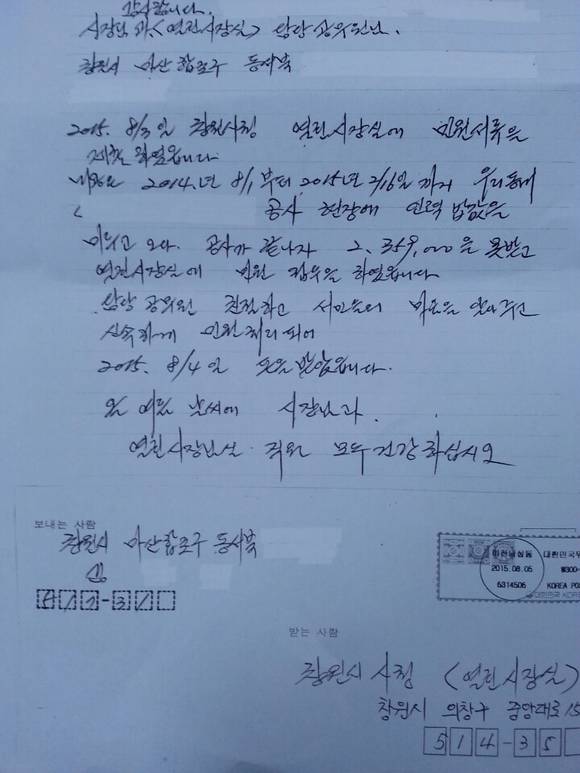 감사합니다.
시장님과 <열린시장실> 담당공무원님.
창원시 마산합포구 동서북
2015. 8/3일 창원시청 열린시장실에 민원서류를
제출 하였읍니다
2014년 8/1부터 2015년 2/16일 까지 우리동네
공사 현장에 인력 밥값을
미루고 오다. 공사가 끝나자 2,359,000을 못받고
열린시장실에 민원 접수를 하였읍니다
담당 공무원 친절하고 서민들의 마음을 알아주고
신속하게 민원처리 되어
2015. 8/4일 돈을 받았읍니다.
올 여름 날씨에 시장님과.
열린시장님실. 직원 모두 건강하십시오
보내는 사람
창원시 마산합포구 동서북
마산남성동
2015.08.05
6314506
대한민국우
₩300
KOREA PO
대한민국 KOR
받는 사람
창원시 시청 (열린시장실)
창원시 의창구 중앙대로 15
514-35